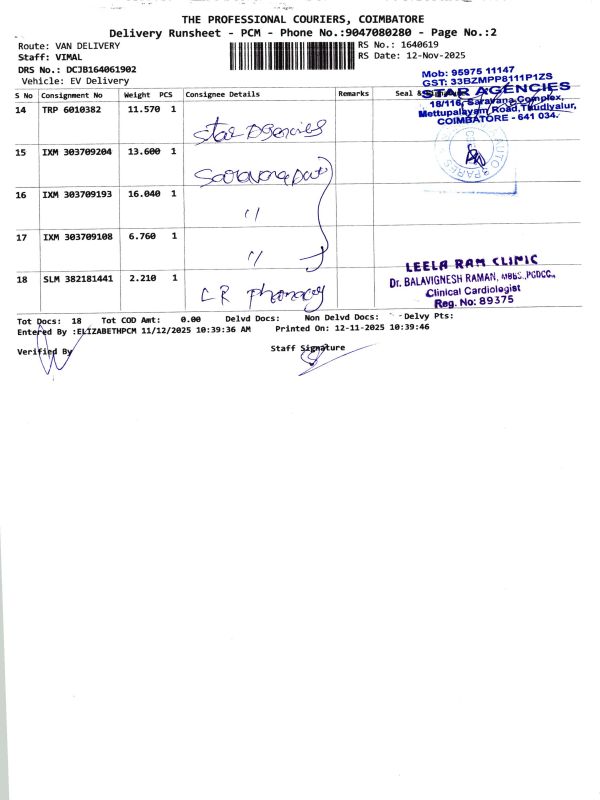 THE PROFESSIONAL COURIERS, COIMBATORE
Delivery Runsheet - PCM - Phone No.:9047080280 - Page No.:2
Route: VAN DELIVERY
RS No.: 1640619
Staff: VIMAL
RS Date: 12-Nov-2025
DRS No.: DCJB164061902
Vehicle: EV Delivery
Mob: 95975 11147
GST: 33BZMPP8111P1ZS
STAR AGENCIES
18/116, Saravana Complex,
Mettupalayam Road, Thudiyalur,
COIMBATORE - 641 034.
S No Consignment No Weight PCS Consignee Details Remarks Seal &
14 TRP 6010382 11.570 1
Star Agencies
15 IXM 303709204 13.600 1
AUTO SPARES
16 IXM 303709193 16.040 1
"
17 IXM 303709108 6.760 1
"
18 SLM 382181441 2.210 1
LR Pharmacy
LEELA RAM CLINIC
Dr. BALAVIGNESH RAMAN, MBBS.,PGDCC.,
Clinical Cardiologist
Reg. No: 89375
Tot Docs: 18 Tot COD Amt: 0.00 Delvd Docs: Non Delvd Docs: Delvy Pts:
Entered By :ELIZABETHPCM 11/12/2025 10:39:36 AM Printed On: 12-11-2025 10:39:46
Verified By
Staff Signature